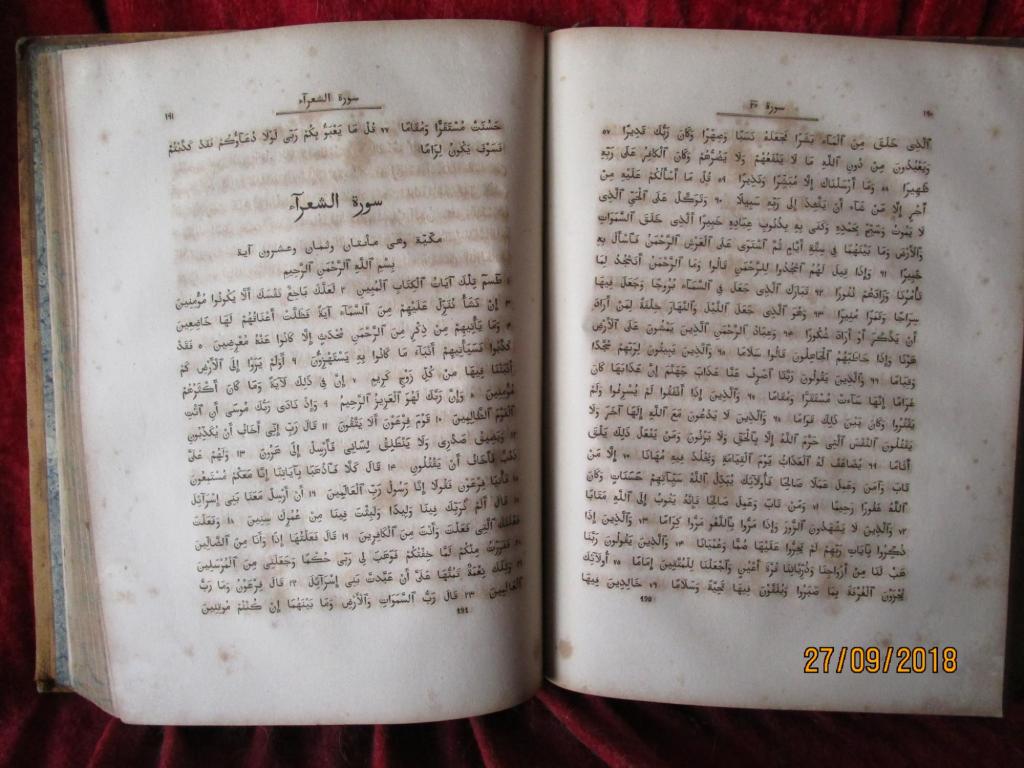 ١٩٠
سورة ٢٥
ٱلَّذِى خَلَقَ مِنَ ٱلْمَآءِ بَشَرًا فَجَعَلَهُ نَسَبًا وَصِهْرًا وَكَانَ رَبُّكَ قَدِيرًا ٥٧
وَيَعْبُدُونَ مِنْ دُونِ ٱللَّهِ مَا لَا يَنْفَعُهُمْ وَلَا يَضُرُّهُمْ وَكَانَ ٱلْكَافِرُ عَلَى رَبِّهِ
ظَهِيرًا ٥٨ وَمَا أَرْسَلْنَاكَ إِلَّا مُبَشِّرًا وَنَذِيرًا ٥٩ قُلْ مَا أَسْأَلُكُمْ عَلَيْهِ مِنْ
أَجْرٍ إِلَّا مَنْ شَآءَ أَنْ يَتَّخِذَ إِلَى رَبِّهِ سَبِيلًا ٦٠ وَتَوَكَّلْ عَلَى ٱلْحَىِّ ٱلَّذِى
لَا يَمُوتُ وَسَبِّحْ بِحَمْدِهِ وَكَفَى بِهِ بِذُنُوبِ عِبَادِهِ خَبِيرًا ٱلَّذِى خَلَقَ ٱلسَّمَوَاتِ
وَٱلْأَرْضَ وَمَا بَيْنَهُمَا فِى سِتَّةِ أَيَّامٍ ثُمَّ ٱسْتَوَى عَلَى ٱلْعَرْشِ ٱلرَّحْمَنُ فَٱسْأَلْ بِهِ
خَبِيرًا ٦١ وَإِذَا قِيلَ لَهُمُ ٱسْجُدُوا لِلرَّحْمَنِ قَالُوا وَمَا ٱلرَّحْمَنُ أَنَسْجُدُ لِمَا
تَأْمُرُنَا وَزَادَهُمْ نُفُورًا ٦٢ تَبَارَكَ ٱلَّذِى جَعَلَ فِى ٱلسَّمَآءِ بُرُوجًا وَجَعَلَ فِيهَا
سِرَاجًا وَقَمَرًا مُنِيرًا ٦٣ وَهُوَ ٱلَّذِى جَعَلَ ٱللَّيْلَ وَٱلنَّهَارَ خِلْفَةً لِمَنْ أَرَادَ
أَنْ يَذَّكَّرَ أَوْ أَرَادَ شُكُورًا ٦٤ وَعِبَادُ ٱلرَّحْمَنِ ٱلَّذِينَ يَمْشُونَ عَلَى ٱلْأَرْضِ
هَوْنًا وَإِذَا خَاطَبَهُمُ ٱلْجَاهِلُونَ قَالُوا سَلَامًا ٦٥ وَٱلَّذِينَ يَبِيتُونَ لِرَبِّهِمْ سُجَّدًا
وَقِيَامًا ٦٦ وَٱلَّذِينَ يَقُولُونَ رَبَّنَا ٱصْرِفْ عَنَّا عَذَابَ جَهَنَّمَ إِنَّ عَذَابَهَا كَانَ
غَرَامًا إِنَّهَا سَآءَتْ مُسْتَقَرًّا وَمُقَامًا ٦٧ وَٱلَّذِينَ إِذَا أَنْفَقُوا لَمْ يُسْرِفُوا وَلَمْ
يَقْتُرُوا وَكَانَ بَيْنَ ذَلِكَ قَوَامًا ٦٨ وَٱلَّذِينَ لَا يَدْعُونَ مَعَ ٱللَّهِ إِلَهًا آخَرَ وَلَا
يَقْتُلُونَ ٱلنَّفْسَ ٱلَّتِى حَرَّمَ ٱللَّهُ إِلَّا بِٱلْحَقِّ وَلَا يَزْنُونَ وَمَنْ يَفْعَلْ ذَلِكَ يَلْقَ
أَثَامًا ٦٩ يُضَاعَفْ لَهُ ٱلْعَذَابُ يَوْمَ ٱلْقِيَامَةِ وَيَخْلُدْ فِيهِ مُهَانًا ٧٠ إِلَّا مَنْ
تَابَ وَآمَنَ وَعَمِلَ عَمَلًا صَالِحًا فَأُولَائِكَ يُبَدِّلُ ٱللَّهُ سَيِّآتِهِمْ حَسَنَاتٍ وَكَانَ
ٱللَّهُ غَفُورًا رَحِيمًا ٧١ وَمَنْ تَابَ وَعَمِلَ صَالِحًا فَإِنَّهُ يَتُوبُ إِلَى ٱللَّهِ مَتَابًا
٧٢ وَٱلَّذِينَ لَا يَشْهَدُونَ ٱلزُّورَ وَإِذَا مَرُّوا بِٱللَّغْوِ مَرُّوا كِرَامًا ٧٣ وَٱلَّذِينَ إِذَا
ذُكِّرُوا بِآيَاتِ رَبِّهِمْ لَمْ يَخِرُّوا عَلَيْهَا صُمًّا وَعُمْيَانًا ٧٤ وَٱلَّذِينَ يَقُولُونَ رَبَّنَا
هَبْ لَنَا مِنْ أَزْوَاجِنَا وَذُرِّيَّاتِنَا قُرَّةَ أَعْيُنٍ وَٱجْعَلْنَا لِلْمُتَّقِينَ إِمَامًا ٧٥ أُولَائِكَ
يُجْزَوْنَ ٱلْغُرْفَةَ بِمَا صَبَرُوا وَيُلَقَّوْنَ فِيهَا تَحِيَّةً وَسَلَامًا ٧٦ خَالِدِينَ فِيهَا
190
سورة الشعرآء
١٩١
حَسُنَتْ مُسْتَقَرًّا وَمُقَامًا ٧٧ قُلْ مَا يَعْبَؤُ بِكُمْ رَبِّى لَوْلَا دُعَآؤُكُمْ فَقَدْ كَذَّبْتُمْ
فَسَوْفَ يَكُونُ لِزَامًا
سورة الشعرآء
مكيّة وهى مائتان وثمان وعشرون آية
بِسْمِ ٱللَّهِ ٱلرَّحْمَنِ ٱلرَّحِيمِ
١ طٓسٓمٓ تِلْكَ آيَاتُ ٱلْكِتَابِ ٱلْمُبِينِ ٢ لَعَلَّكَ بَاخِعٌ نَفْسَكَ أَلَّا يَكُونُوا مُؤْمِنِينَ
٣ إِنْ نَشَأْ نُنَزِّلْ عَلَيْهِمْ مِنَ ٱلسَّمَآءِ آيَةً فَظَلَّتْ أَعْنَاقُهُمْ لَهَا خَاضِعِينَ
٤ وَمَا يَأْتِيهِمْ مِنْ ذِكْرٍ مِنَ ٱلرَّحْمَنِ مُحْدَثٍ إِلَّا كَانُوا عَنْهُ مُعْرِضِينَ ٥ فَقَدْ
كَذَّبُوا فَسَيَأْتِيهِمْ أَنْبَآءُ مَا كَانُوا بِهِ يَسْتَهْزِؤُنَ ٦ أَوَلَمْ يَرَوْا إِلَى ٱلْأَرْضِ كَمْ
أَنْبَتْنَا فِيهَا مِنْ كُلِّ زَوْجٍ كَرِيمٍ ٧ إِنَّ فِى ذَلِكَ لَآيَةً وَمَا كَانَ أَكْثَرُهُمْ
مُؤْمِنِينَ ٨ وَإِنَّ رَبَّكَ لَهُوَ ٱلْعَزِيزُ ٱلرَّحِيمُ ٩ وَإِذْ نَادَى رَبُّكَ مُوسَى أَنِ ٱئْتِ
ٱلْقَوْمَ ٱلظَّالِمِينَ ١٠ قَوْمَ فِرْعَوْنَ أَلَا يَتَّقُونَ ١١ قَالَ رَبِّ إِنِّى أَخَافُ أَنْ يُكَذِّبُونِ
١٢ وَيَضِيقُ صَدْرِى وَلَا يَنْطَلِقُ لِسَانِى فَأَرْسِلْ إِلَى هَرُونَ ١٣ وَلَهُمْ عَلَىَّ
ذَنْبٌ فَأَخَافُ أَنْ يَقْتُلُونِ ١٤ قَالَ كَلَّا فَٱذْهَبَا بِآيَاتِنَا إِنَّا مَعَكُمْ مُسْتَمِعُونَ
١٥ فَأْتِيَا فِرْعَوْنَ فَقُولَا إِنَّا رَسُولُ رَبِّ ٱلْعَالَمِينَ ١٦ أَنْ أَرْسِلْ مَعَنَا بَنِى إِسْرَآئِلَ
١٧ قَالَ أَلَمْ نُرَبِّكَ فِينَا وَلِيدًا وَلَبِثْتَ فِينَا مِنْ عُمُرِكَ سِنِينَ ١٨ وَفَعَلْتَ
فَعْلَتَكَ ٱلَّتِى فَعَلْتَ وَأَنْتَ مِنَ ٱلْكَافِرِينَ ١٩ قَالَ فَعَلْتُهَا إِذًا وَأَنَا مِنَ ٱلضَّالِّينَ
٢٠ فَفَرَرْتُ مِنْكُمْ لَمَّا خِفْتُكُمْ فَوَهَبَ لِى رَبِّى حُكْمًا وَجَعَلَنِى مِنَ ٱلْمُرْسَلِينَ
٢١ وَتِلْكَ نِعْمَةٌ تَمُنُّهَا عَلَىَّ أَنْ عَبَّدْتَ بَنِى إِسْرَآئِلَ ٢٢ قَالَ فِرْعَوْنُ وَمَا رَبُّ
ٱلْعَالَمِينَ ٢٣ قَالَ رَبُّ ٱلسَّمَوَاتِ وَٱلْأَرْضِ وَمَا بَيْنَهُمَا إِنْ كُنْتُمْ مُوقِنِينَ
191
27/09/2018